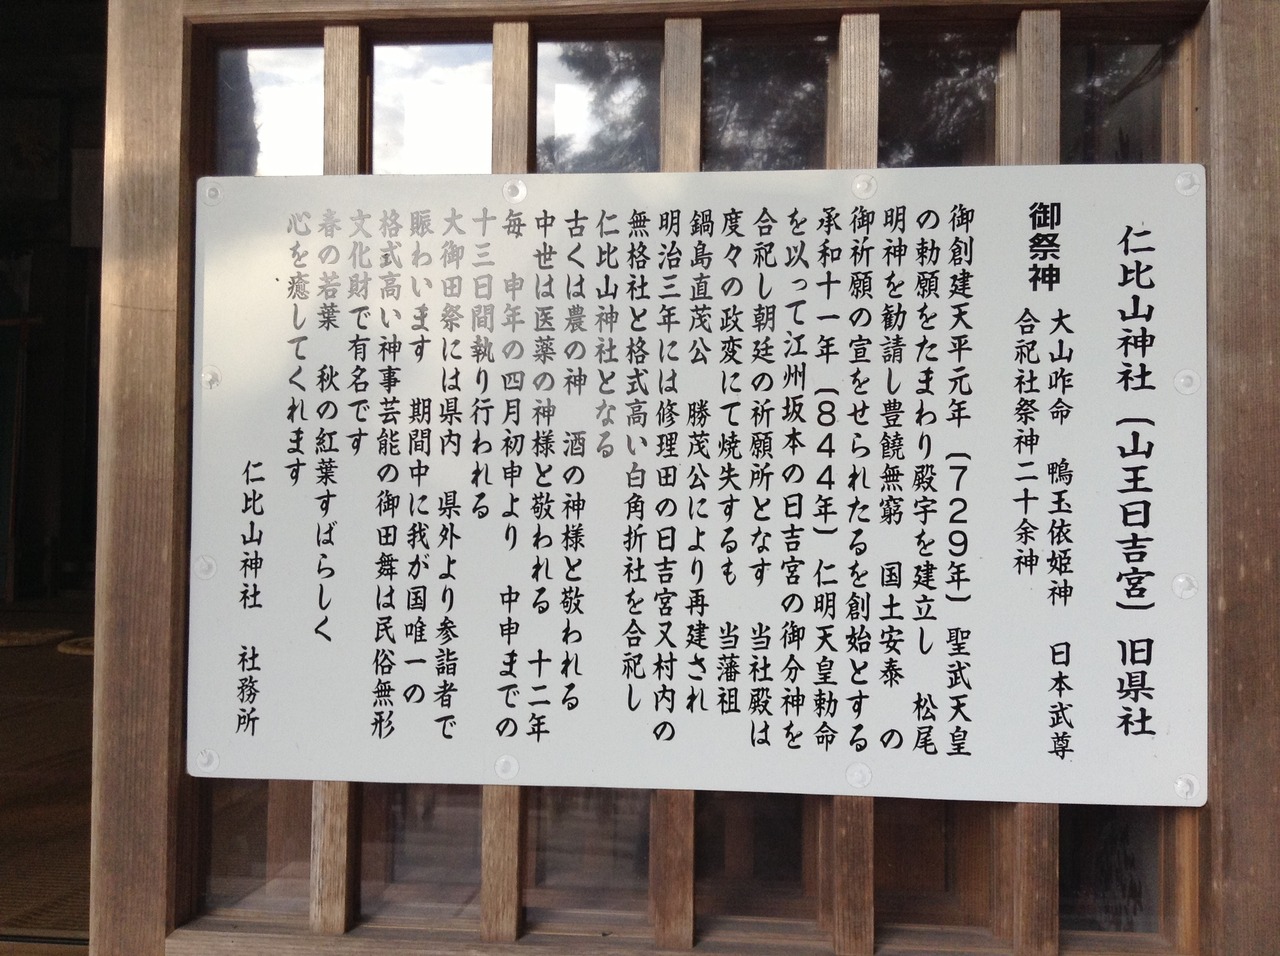 仁比山神社（山王日吉宮）旧県社
御祭神
大山咋命　鴨玉依姫神　日本武尊
合祀社祭神二十余神
御創建天平元年（７２９年）聖武天皇
の勅願をたまわり殿宇を建立し　松尾
明神を勧請し豊饒無窮　国土安泰　の
御祈願の宣をせられたるを創始とする
承和十一年（８４４年）仁明天皇勅命
を以って江州坂本の日吉宮の御分神を
合祀し朝廷の祈願所となす　当社殿は
度々の政変にて焼失するも　当藩祖
鍋島直茂公　勝茂公により再建され
明治三年には修理田の日吉宮又村内の
無格社と格式高い白角折社を合祀し
仁比山神社となる
古くは農の神　酒の神様と敬われる
中世は医薬の神様と敬われる　十二年
毎　申年の四月初申より　中申までの
十三日間執り行われる
大御田祭には県内　県外より参詣者で
賑わいます　期間中に我が国唯一の
格式高い神事芸能の御田舞は民俗無形
文化財で有名です
春の若葉　秋の紅葉すばらしく
心を癒してくれます
仁比山神社　社務所